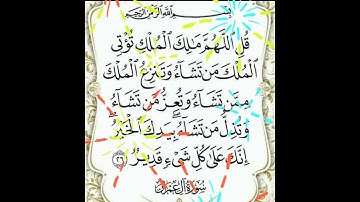 بِسْمِ اللَّهِ الرَّحْمَٰنِ الرَّحِيمِ
قُلِ ٱللَّهُمَّ مَٰلِكَ ٱلْمُلْكِ تُؤْتِى
ٱلْمُلْكَ مَن تَشَآءُ وَتَنزِعُ ٱلْمُلْكَ
مِمَّن تَشَآءُ وَتُعِزُّ مَن تَشَآءُ
وَتُذِلُّ مَن تَشَآءُۖ بِيَدِكَ ٱلْخَيْرُۖ
إِنَّكَ عَلَىٰ كُلِّ شَىْءٍ قَدِيرٌ ٢٦
سُورَةُ آلِ عِمْرَان